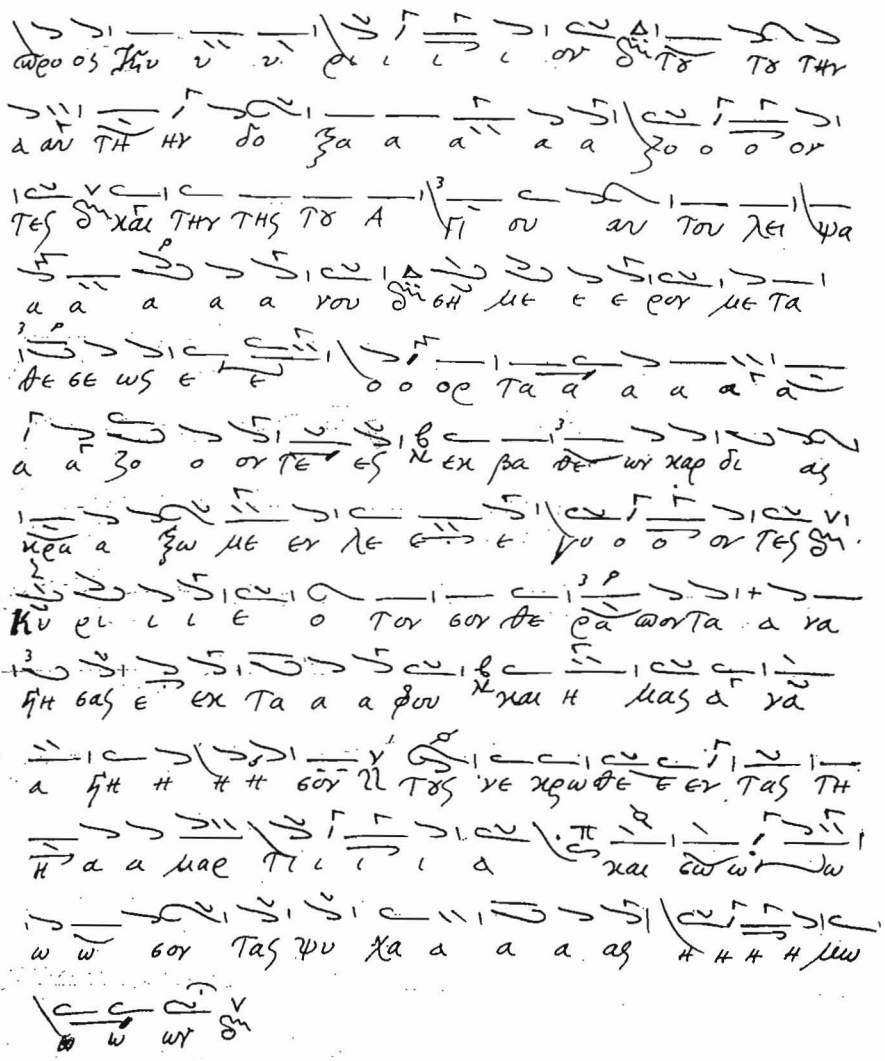 προ ος Κυ υ υ ρι ι ι ι ον Δ τȣ τȣ την
α αν τη ην δο ξα α α α α ζο ο ο ον
τες και την της τȣ Α Πι ου αυ του λει ψα
α α α α α νου Δ ση με ε ε ρον με τα
θε σε ως ε ε ο ο ορ τα α α α α α
α α ζο ο ον τε ες εκ βα θε ων καρ δι ας
κρα α ξω με εν λε ε ε γο ο ο ον τες
Κυ ρι ι ι ε ο τον σον θε ρα πον τα α να
πη σας ε εκ τα α α φου και η μας α να
α πη η η η σον τȣς νε κρω θε ε εν τας τη
η α α μαρ τι ι ι ι α και σω ω ω
ω ω σον τας ψυ χα α α α ας η η η η μω
ω ω ων